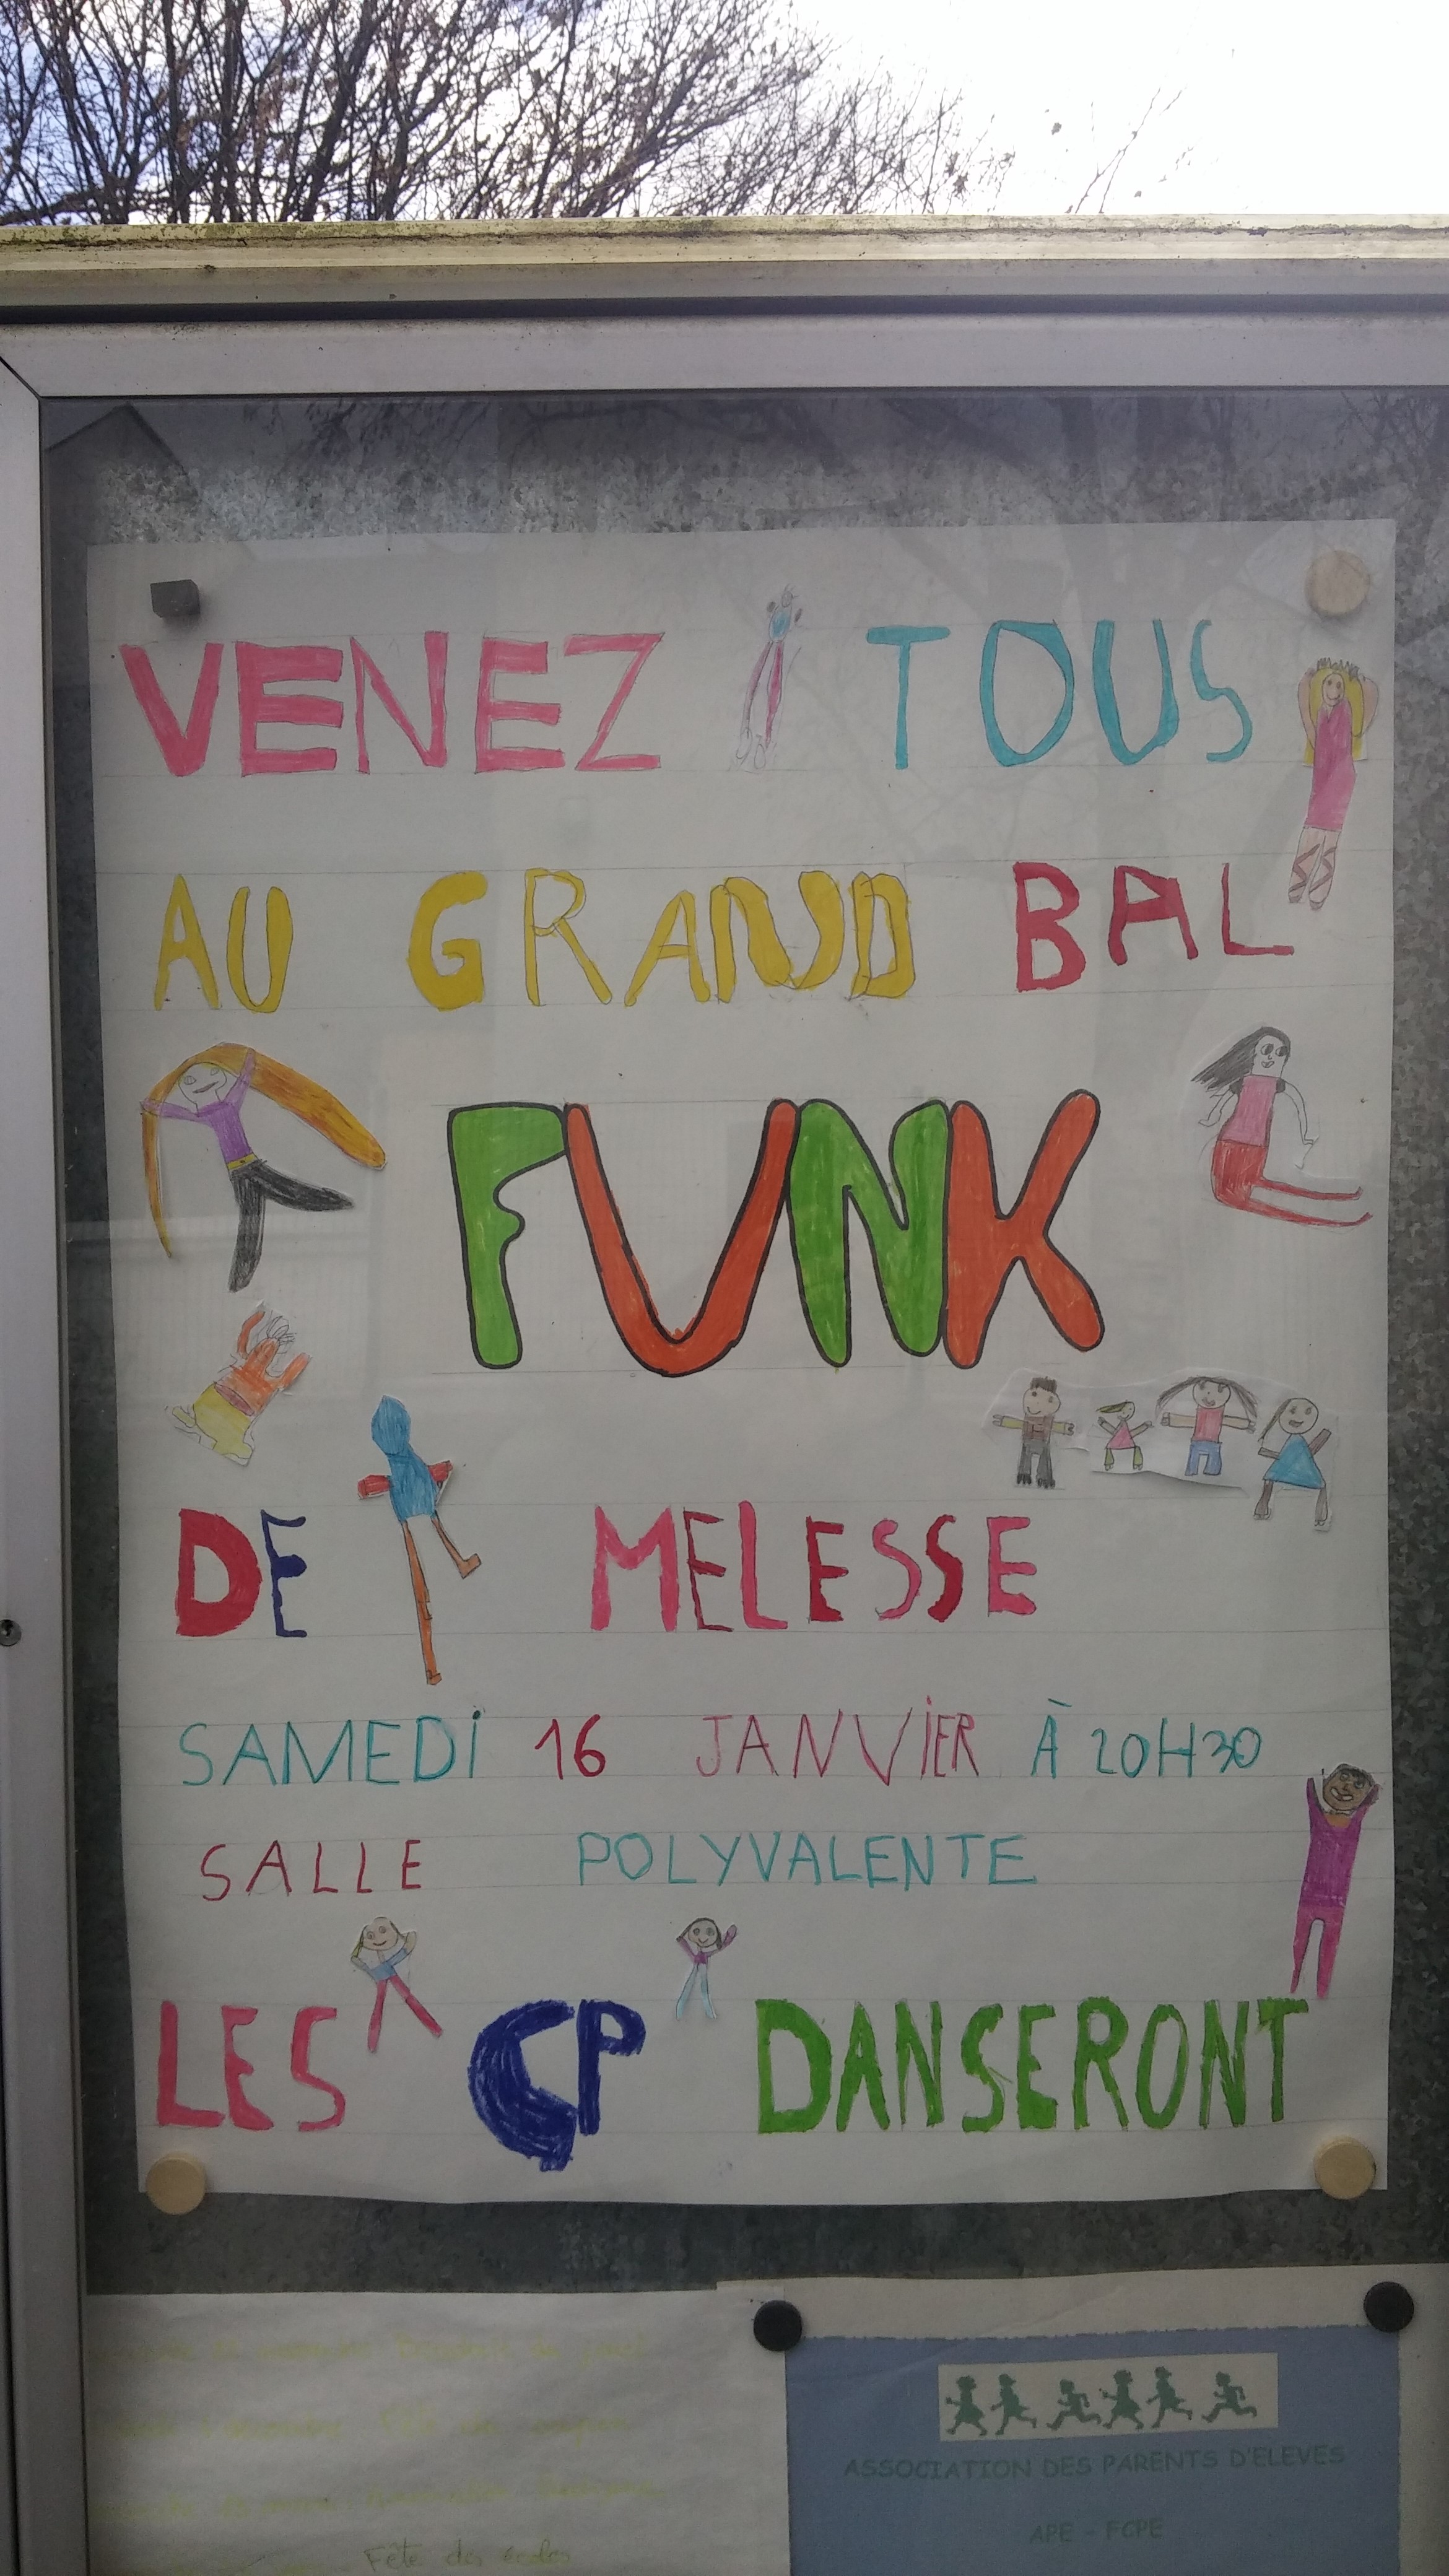 VENEZ TOUS
AU GRAND BAL
FUNK
DE MELESSE
SAMEDi 16 JANViER À 20H30
SALLE POLYVALENTE
LES CP DANSERONT
ASSOCIATION DES PARENTS D'ELEVES
APE - FCPE
Fête des écoles